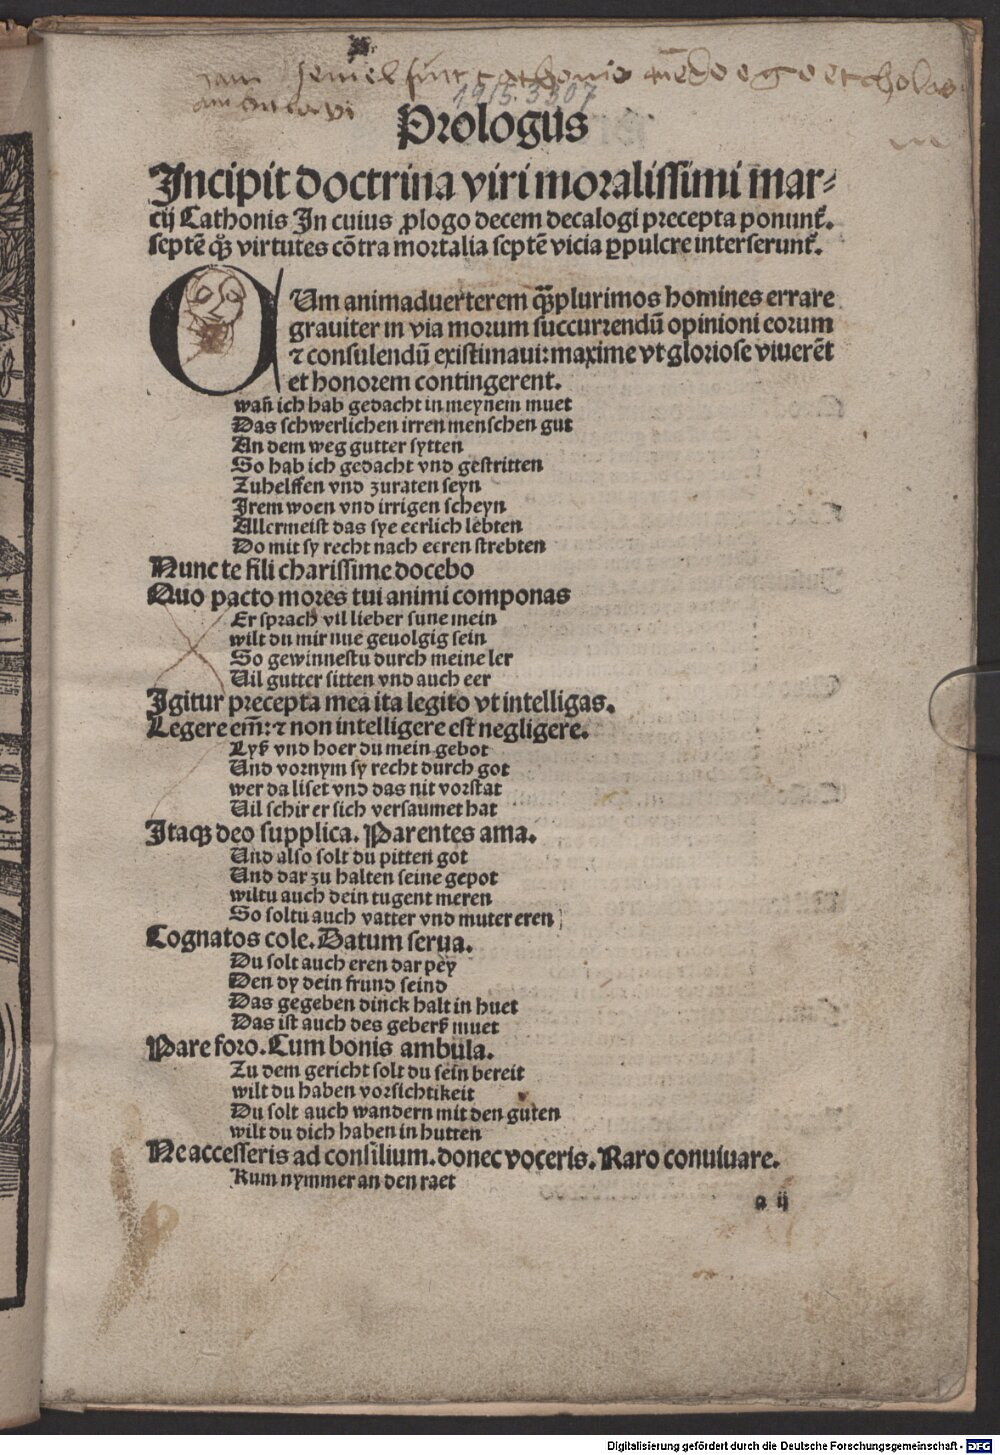 1915.3307
Prologus
Incipit doctrina viri moralissimi mar⸗
cij Cathonis In cuius ꝓlogo decem decalogi precepta ponunt᷑.
septē qꝫ virtutes cōtra mortalia septē vicia ꝑpulcre interserunt᷑.
CUm animaduerterem qꝫplurimos homines errare
grauiter in via morum succurrendū opinioni eorum
⁊ consulendū existimaui: maxime vt gloriose viuerēt
et honorem contingerent.
wañ ich hab gedacht in meynem muet
Das schwerlichen irren menschen gut
An dem weg gutter sytten
So hab ich gedacht vnd gestritten
Zuhelffen vnd zuraten seyn
Irem woen vnd irrigen scheyn
Allermeist das sye eerlich lebten
Do mit sy recht nach eeren strebten
Nunc te fili charissime docebo
Quo pacto mores tui animi componas
Er sprach vil lieber sune mein
wilt du mir nue geuolgig sein
So gewinnestu durch meine ler
Uil gutter sitten vnd auch eer
Igitur precepta mea ita legito vt intelligas.
Legere em̄: ⁊ non intelligere est negligere.
Lyß vnd hoer du mein gebot
Und vornym sy recht durch got
wer da liset vnd das nit vorstat
Uil schir er sich versaumet hat
Itaqꝫ deo supplica. Parentes ama.
Und also solt du pitten got
Und dar zu halten seine gepot
wiltu auch dein tugent meren
So soltu auch vatter vnd muter eren
Cognatos cole. Datum serua.
Du solt auch eren dar pey
Den dy dein frund seind
Das gegeben dinck halt in huet
Das ist auch des geberß muet
Pare foro. Cum bonis ambula.
Zu dem gericht solt du sein bereit
wilt du haben vorsichtikeit
Du solt auch wandern mit den guten
wilt du dich haben in hutten
Ne accesseris ad consilium. donec voceris. Raro conuiuare.
Kum nymmer an den raet
a ij
Digitalisierung gefördert durch die Deutsche Forschungsgemeinschaft - DFG